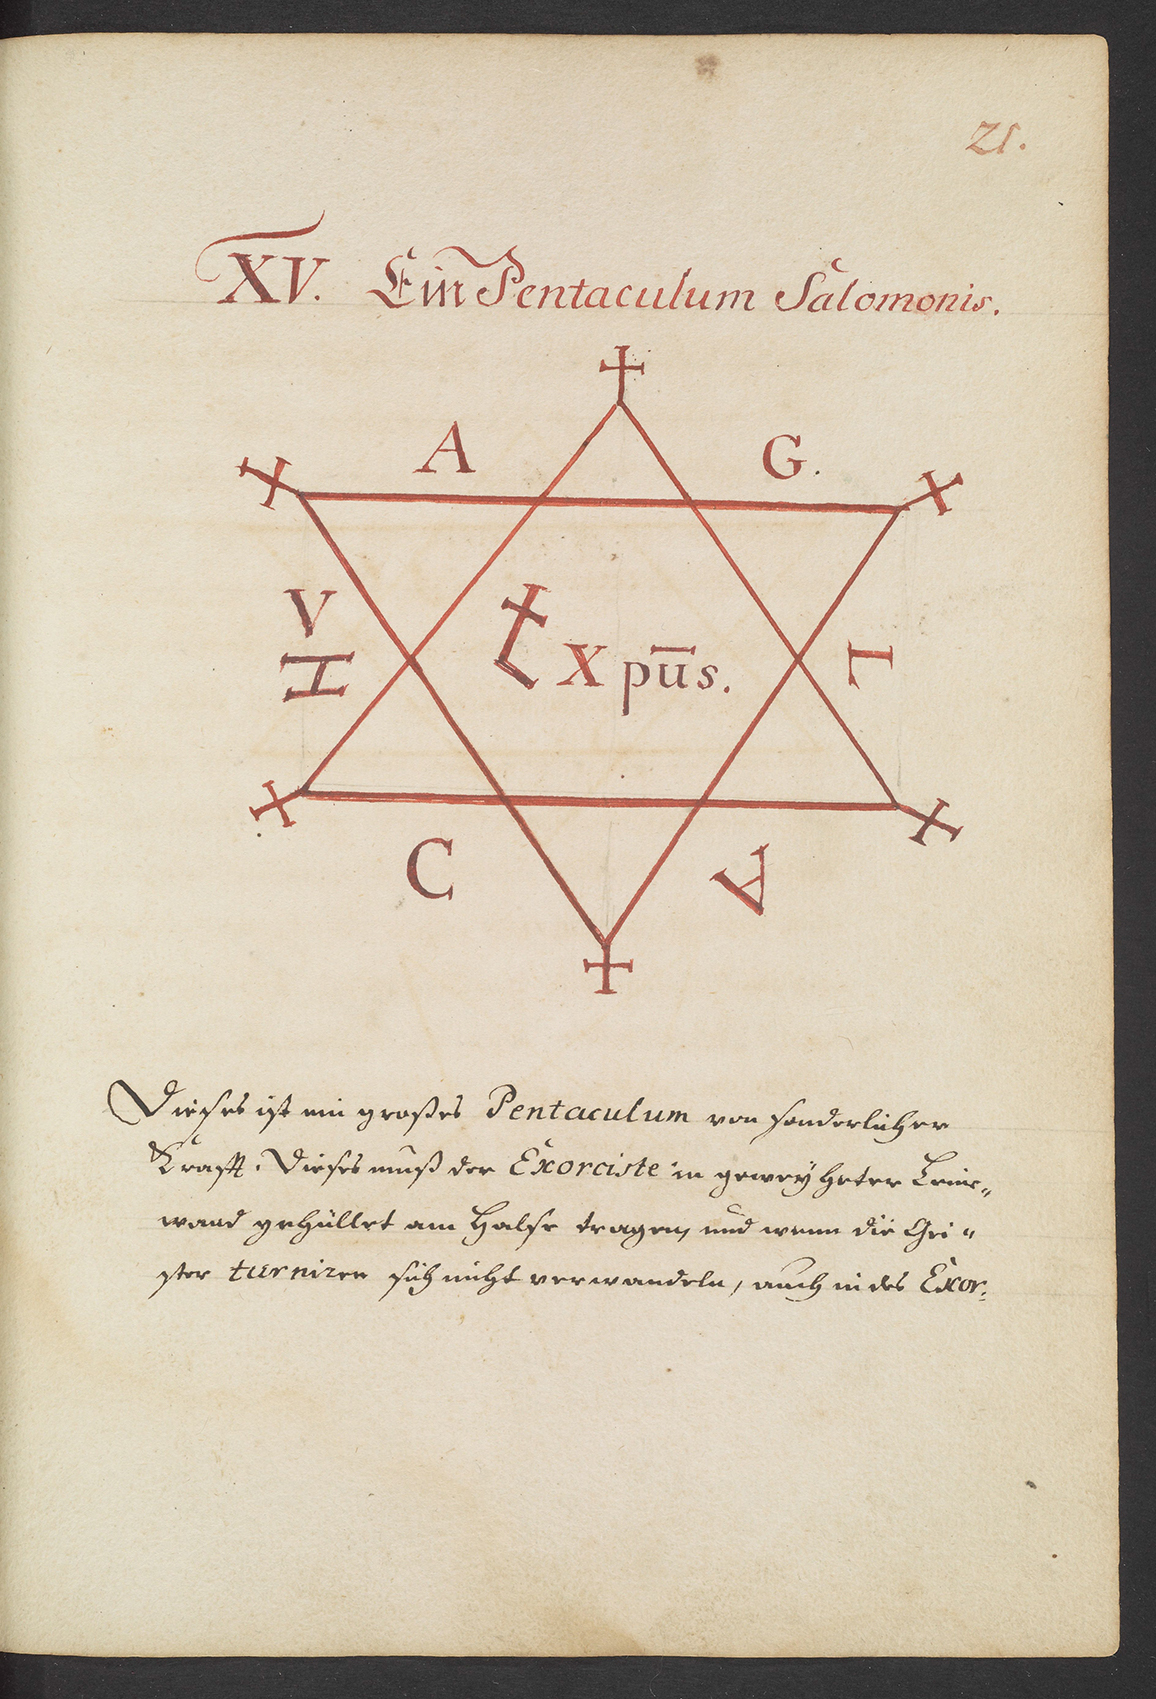 21.
XV. Ein Pentaculum Salomonis.
A G.
V
H L
Xpūs.
C A
Dieses ist ein großes Pentaculum von sonderlicher
Krafft. Dieses muß der Exorciste in geweyheter Lein-
wand gehüllet am Halse tragen, und wenn die Gei-
ster turniren sich nicht verwandeln, auch in des Exor: